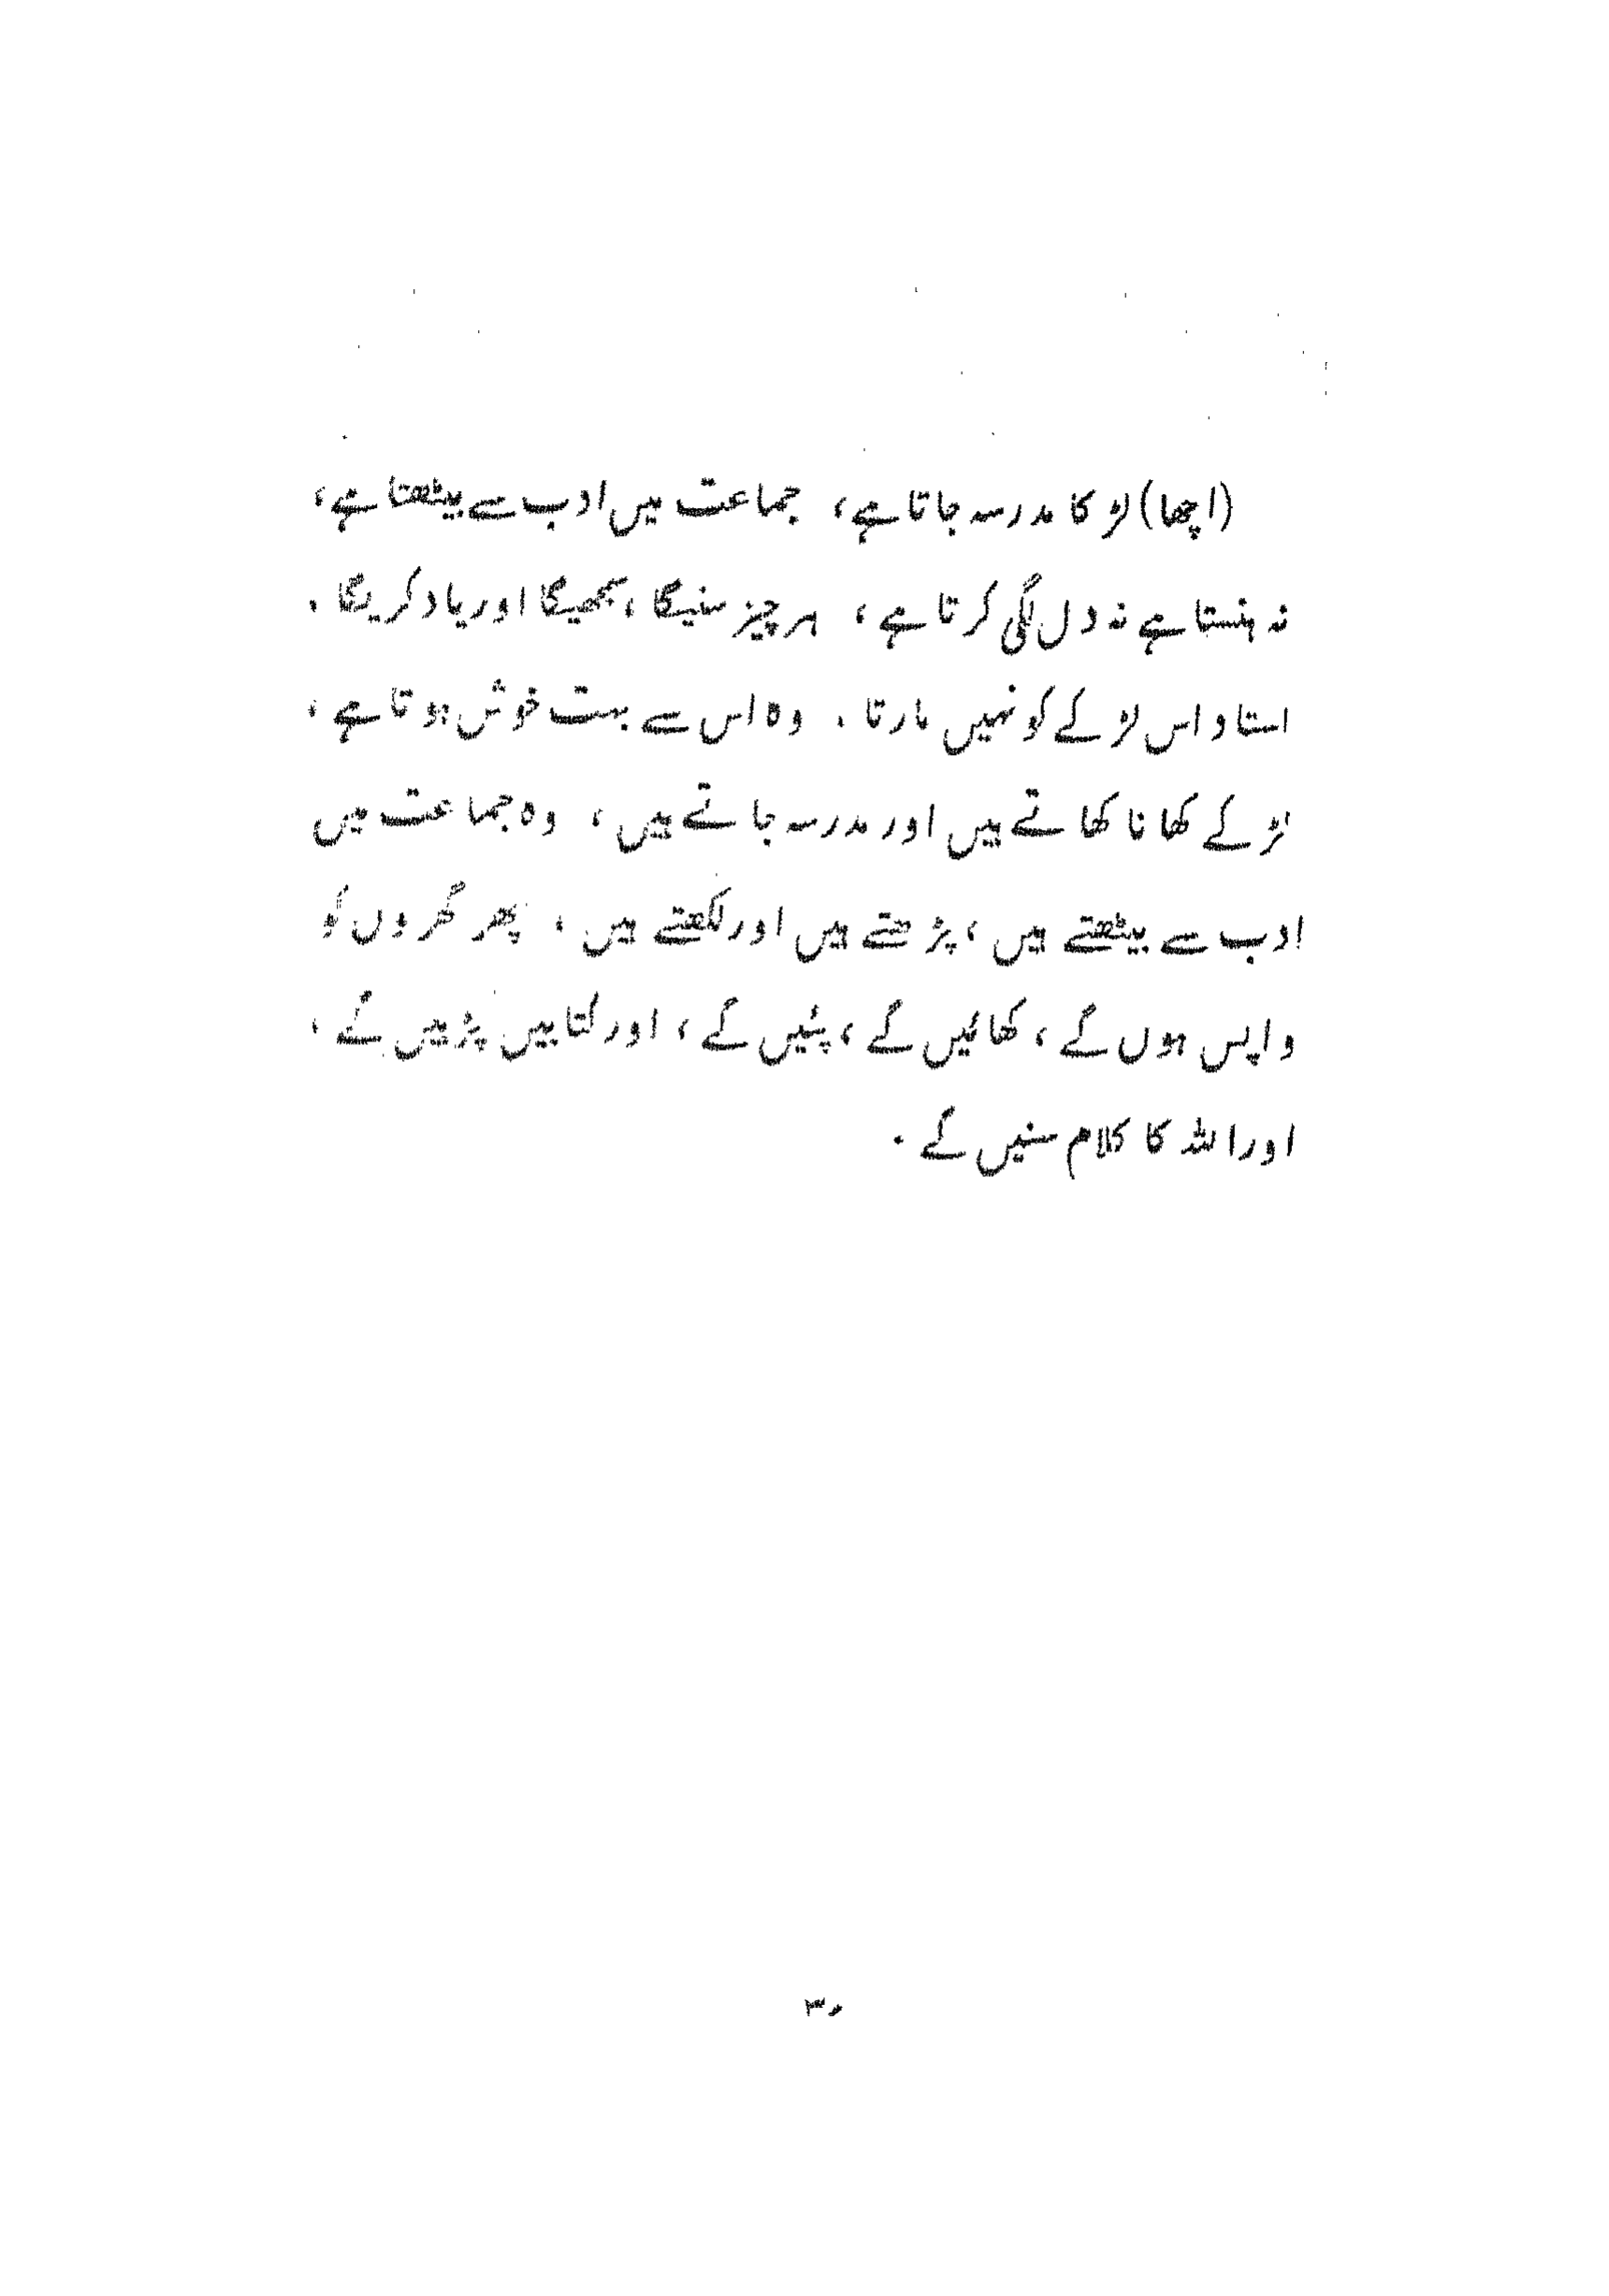 (اچھا) لڑکا مدرسہ جاتا ہے، جماعت میں ادب سے بیٹھتا ہے،
نہ ہنستا ہے نہ دل لگی کرتا ہے، ہر چیز سنیگا، سمجھیگا اور یاد کریگا۔
استاد اس لڑکے کو نہیں مارتا۔ وہ اس سے بہت خوش ہوتا ہے،
لڑکے کھانا کھاتے ہیں اور مدرسہ جاتے ہیں، وہ جماعت میں
ادب سے بیٹھتے ہیں، پڑھتے ہیں اور لکھتے ہیں، پھر گھروں کو
واپس ہوں گے، کھائیں گے، پئیں گے، اور کتابیں پڑہیں گے،
اور اللہ کا کلام سنیں گے۔
۳۰